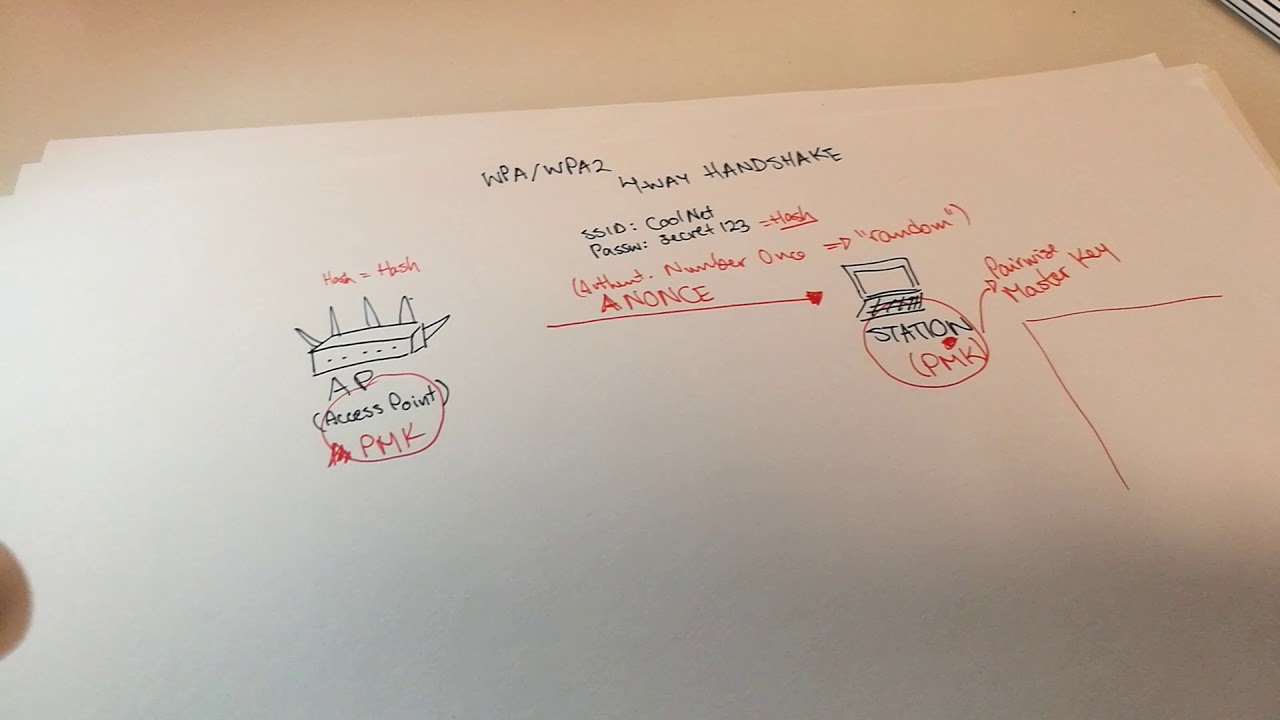 WPA/WPA2 4-WAY HANDSHAKE
SSID: CoolNet
Passw: secret123 =Hash
(Authent. Number Once => "random")
ANONCE
Hash = Hash
AP
(Access Point)
PMK
STATION
(PMK)
Pairwise
Master Key